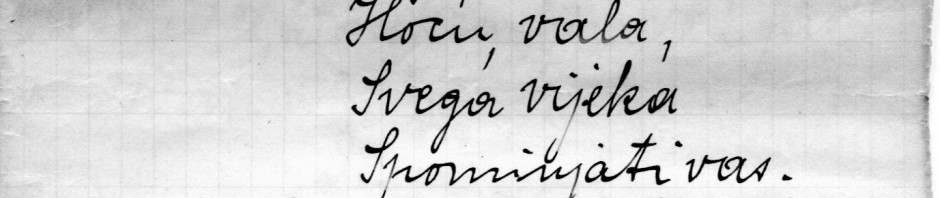 Hoću, vala,
Svega vijeka
Spominjati vas.